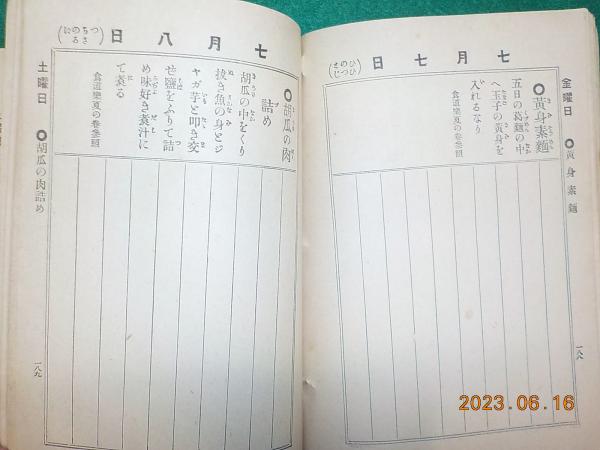 金曜日 ◎黄身素麺
七月七日
(ひのとひつじ)
◎黄身素麺
五日の葛麺の中
へ玉子の黄身を
入れるなり
食道樂夏の卷參照
一八八
七月八日
(つちのさる)
◎胡瓜の肉
詰め
胡瓜の中をくり
拔き魚の身とジ
ヤガ芋と叩き交
せ鹽をふりて詰
め味好き煮汁に
て煮る
食道樂夏の卷參照
土曜日 ◎胡瓜の肉詰め
一八九
2023.06.16